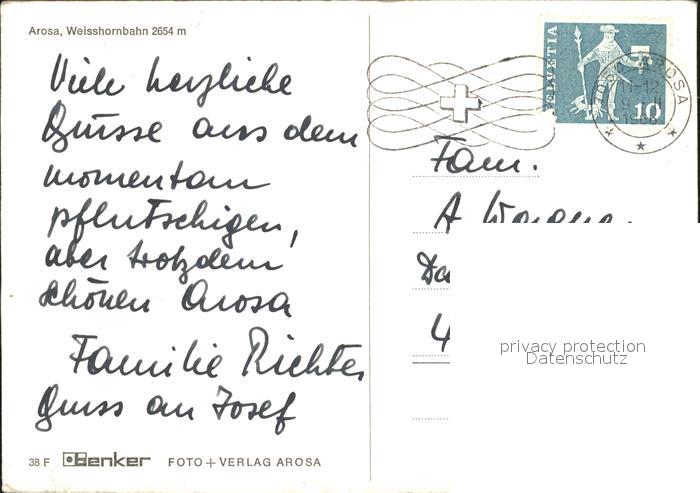 Arosa, Weisshornbahn 2654 m
Viele herzliche
Grüsse aus dem
momentan
pflutschigen,
aber trotzdem
schönen Arosa
Familie Richter
Gruss an Josef
38 F Benker FOTO + VERLAG AROSA
HELVETIA
10
AROSA
11-12
Fam.
A
privacy protection
Datenschutz